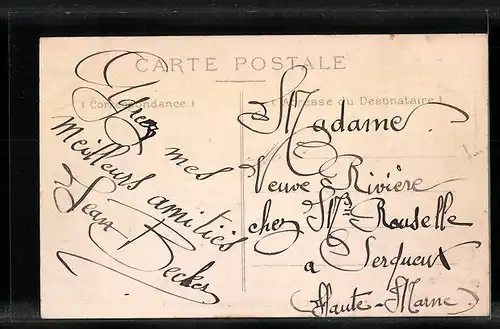 CARTE POSTALE
(Correspondance)
(Adresse du Destinataire)
mes
meilleurs amitiés
Jean Becker
Madame
Veuve Rivière
chez Mr Rouselle
a Serqueux
(Haute-Marne)